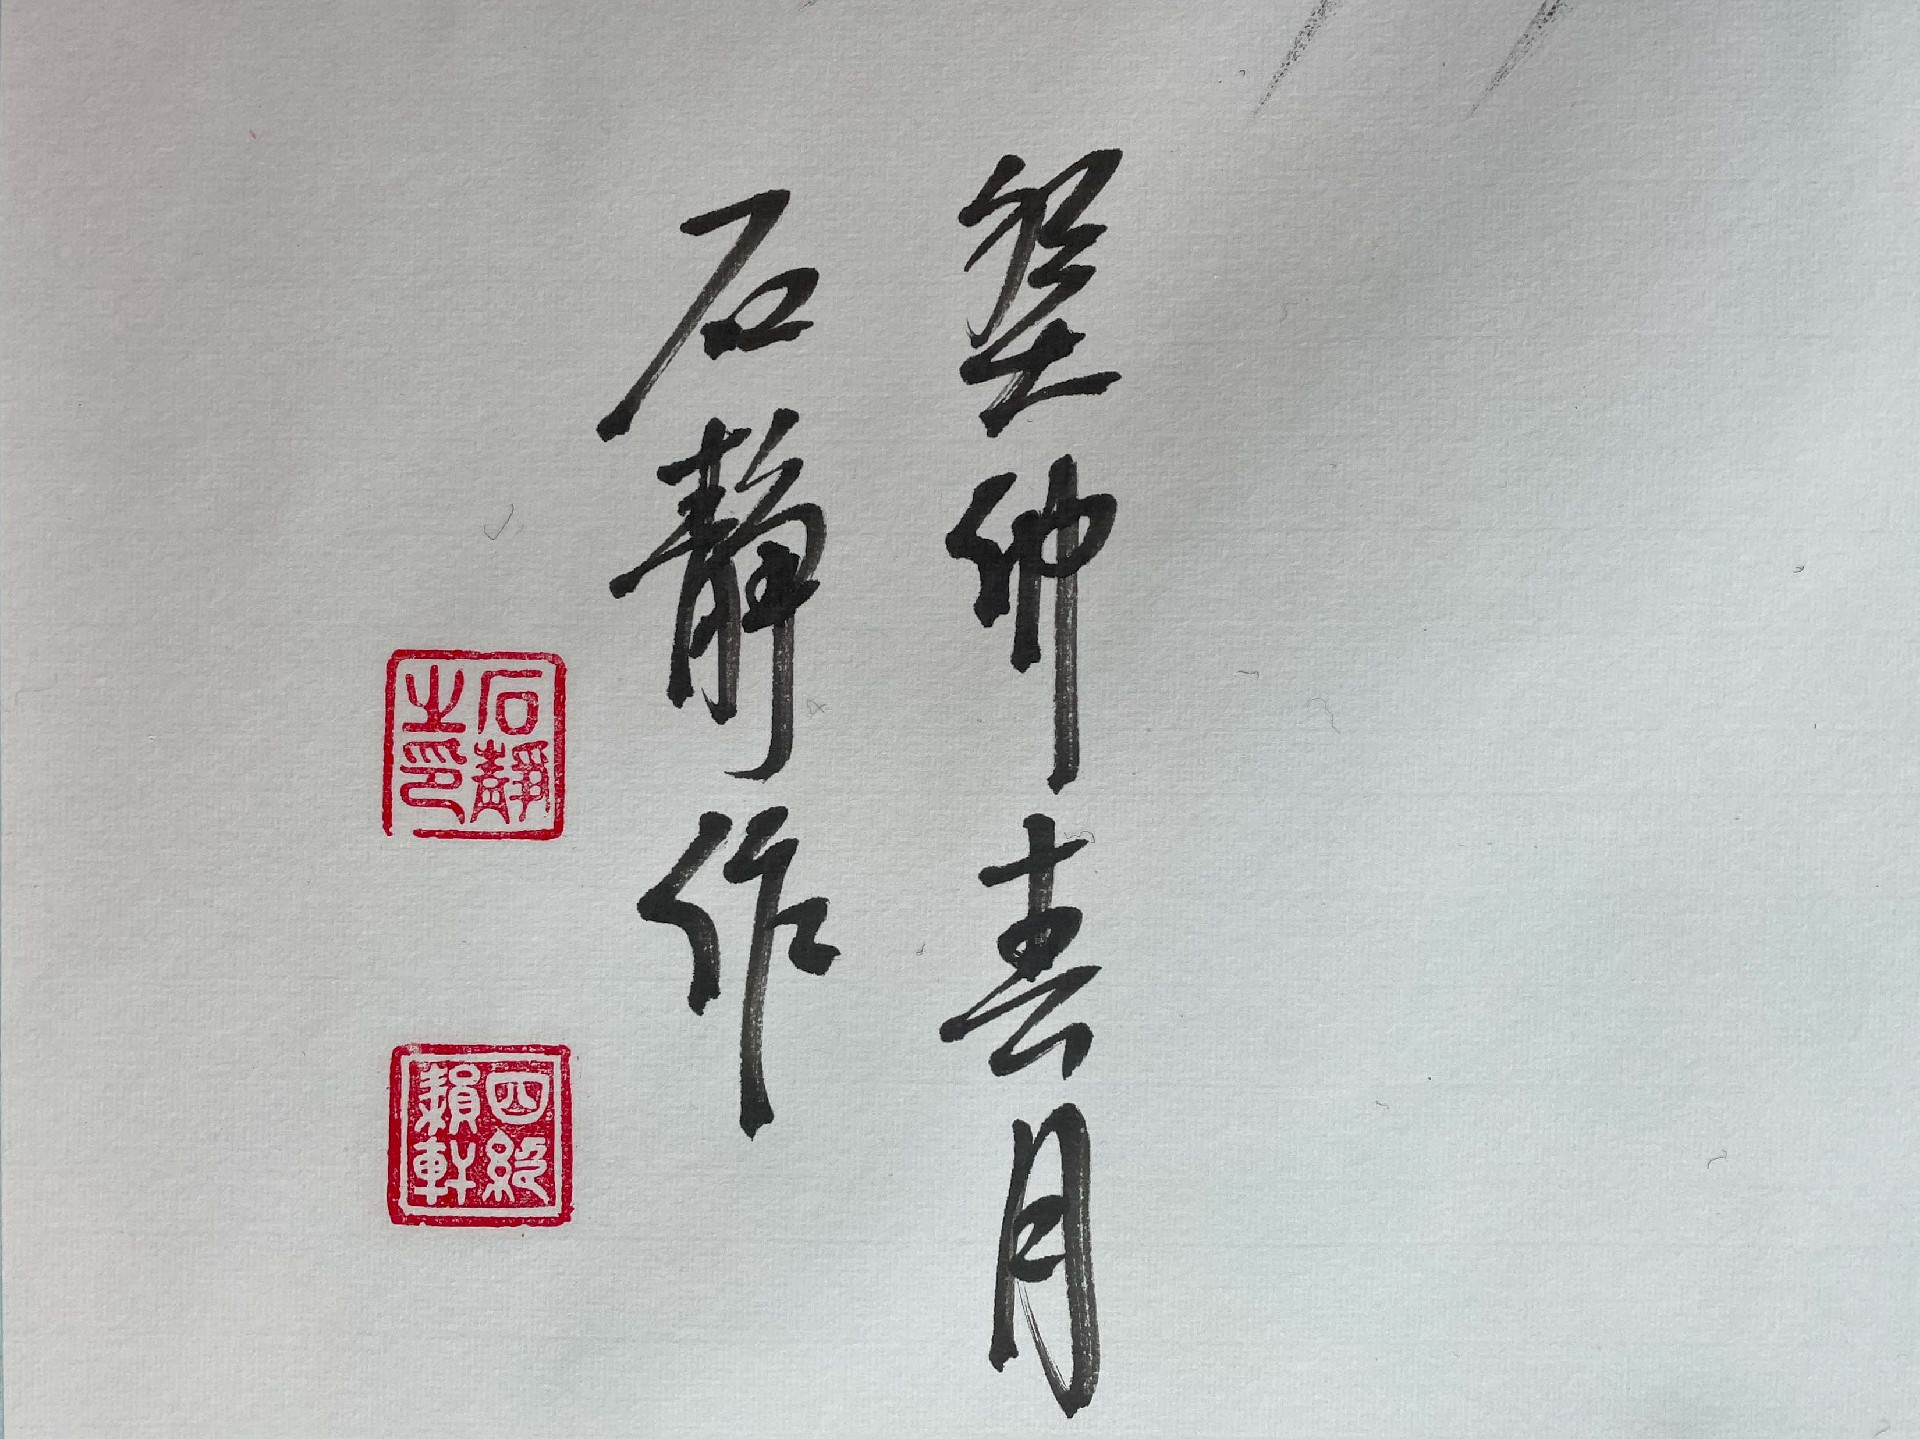 癸卯春月
石静作
石靜之印
四絕
軒